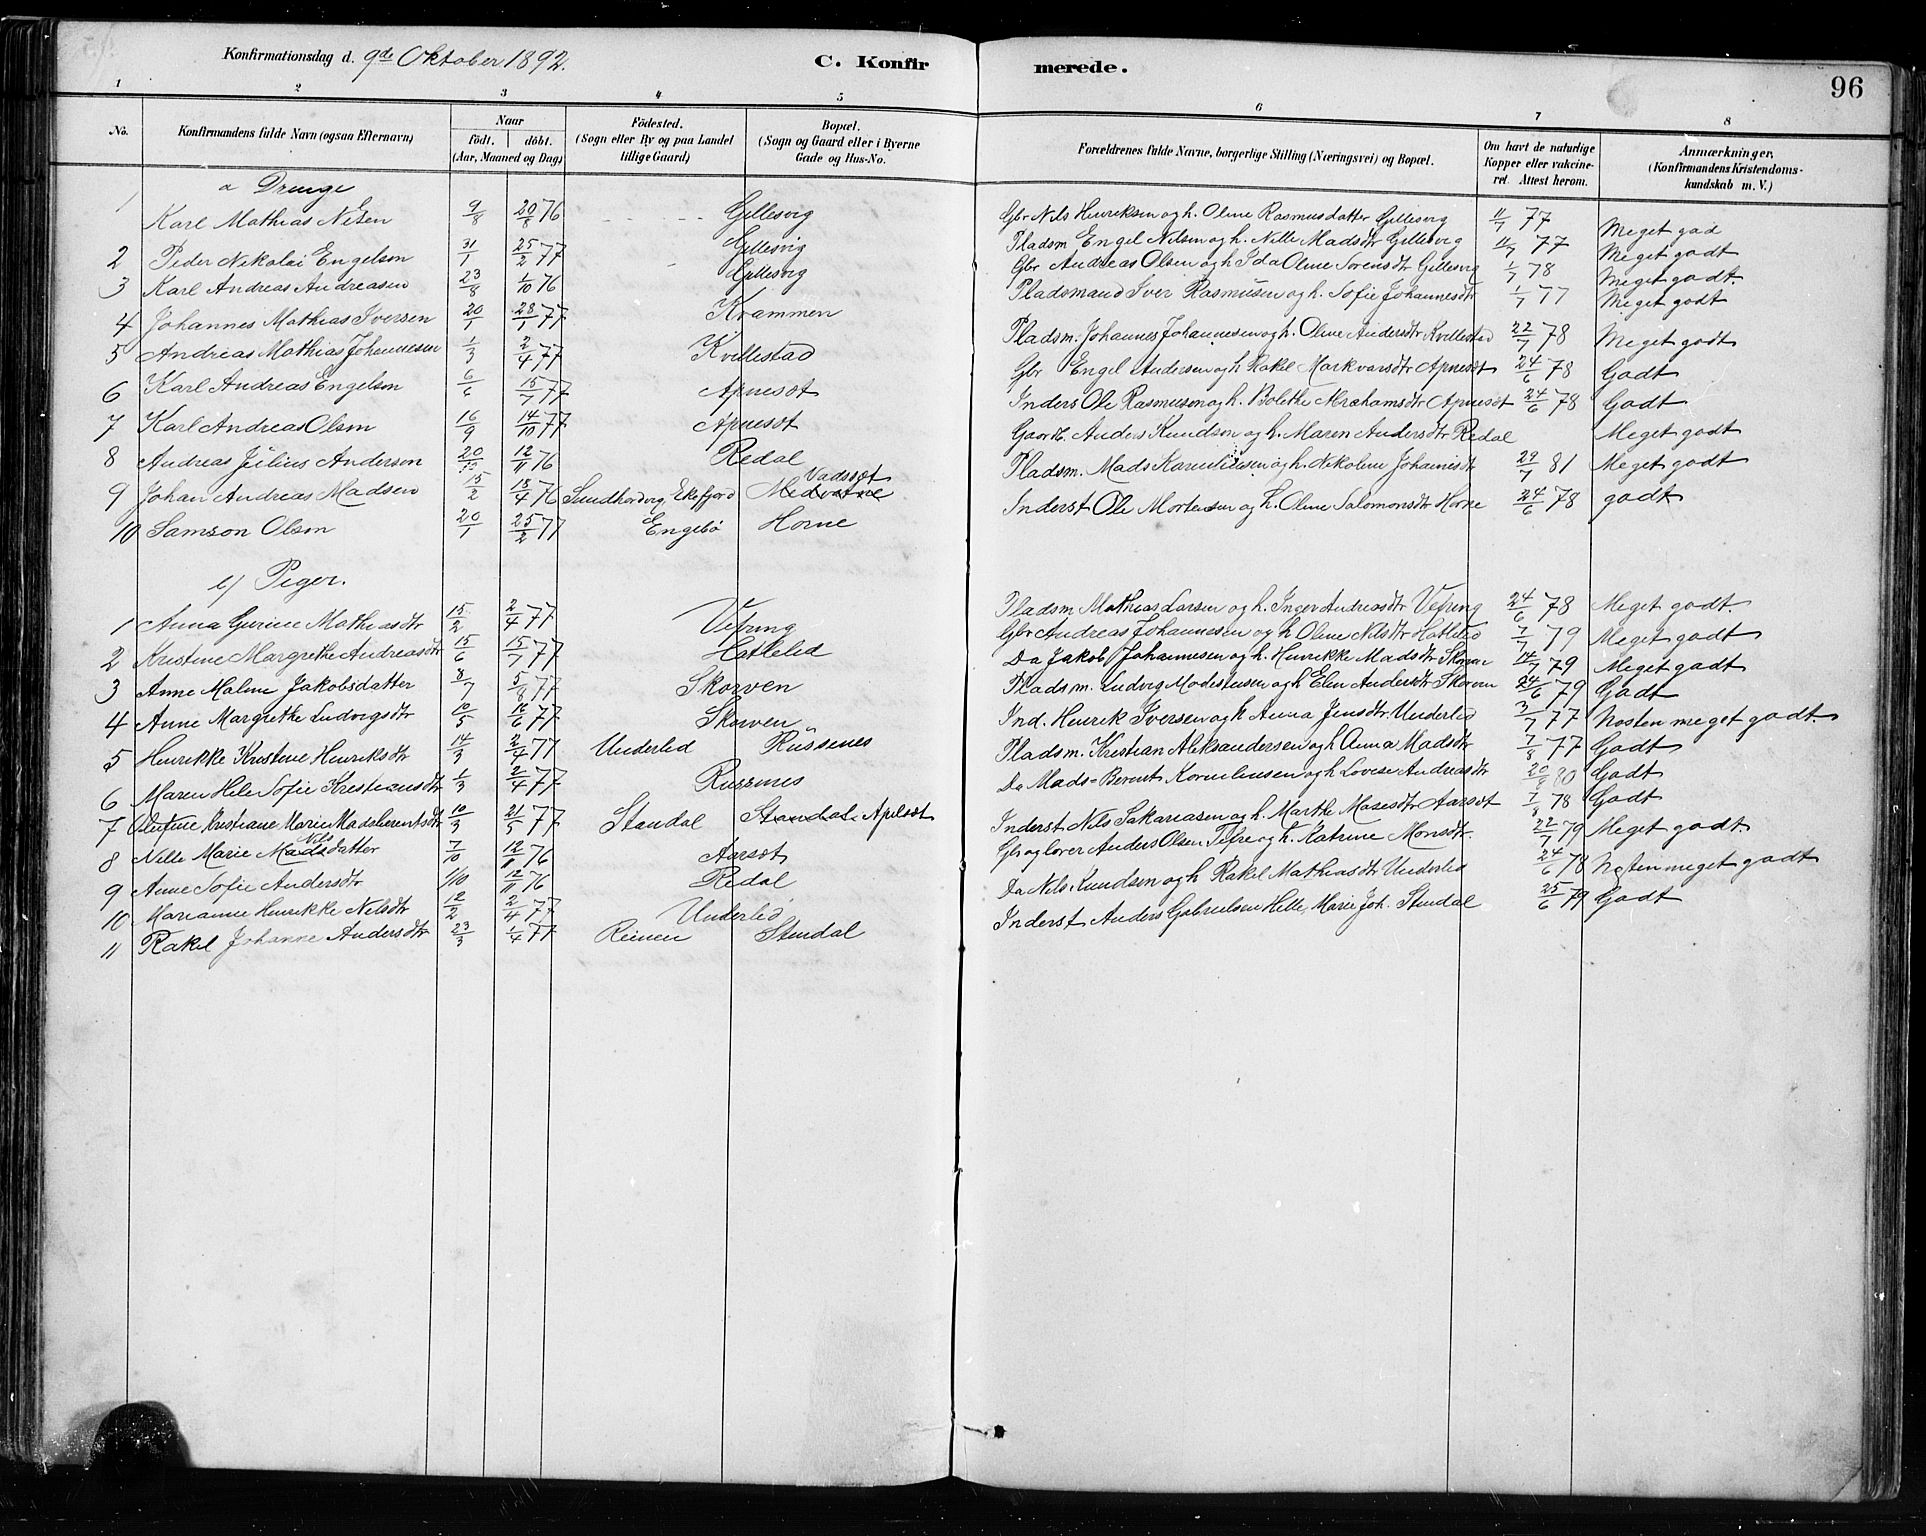 Konfirmationsdag d. 9de Oktober 1892.
C. Konfirmerede.
96
1 2 3 4 5 6 7 8
No.
Konfirmandens fulde Navn (ogsaa Efternavn)
Naar
födt. döbt.
(Aar, Maaned og Dag)
Födested.
(Sogn eller By og paa Landet
tillige Gaard)
Bopæl.
(Sogn og Gaard eller i Byerne
Gade og Hus-No.
Forældrenes fulde Navne, borgerlige Stilling (Næringsvei) og Bopæl.
Om havt de naturlige
Kopper eller vakcine-
ret. Attest herom.
Anmærkninger,
(Konfirmandens Kristendoms-
kundskab m. V.)
a Drenge
1 Karl Mathias Nilsen 9/8 20/8 76 Gillesvig Gbr Nils Henriksen og h. Oline Rasmusdatter Gillesvig 11/7 77 Meget god
2 Peder Nikolai Engelsen 31/1 25/2 77 Gillesvig Pladsm Engel Nilsen og h. Nille Madsdtr Gillesvig 11/7 77 Meget godt
3 Karl Andreas Andreasen 23/8 1/10 76 Gillesvig Gbr Andreas Olsen og h Ida Oline Sorensdtr Gillesvig 1/7 78 Meget godt.
4 Johannes Mathias Iversen 20/1 28/1 77 Krammen Pladsmand Iver Rasmusen og h. Sofie Johannesdtr 1/7 77 Meget godt
5 Andreas Mathias Johannesen 1/3 2/4 77 Kvillestad Pladsm. Johannes Johannesen og h. Oline Andersdtr Kvillestad 22/7 78 Meget godt
6 Karl Andreas Engelsen 6/6 15/7 77 Apnesæt Gbr Engel Andersen og h Rakel Markvardtr Apnesæt 24/6 78 Godt
7 Karl Andreas Olsen 16/9 14/10 77 Apnesæt Inders Ole Rasmusen og h. Bolethe Abrahamsdtr Apnesæt 24/6 78 Godt
8 Andreas Julius Andersen 20/10 12/11 76 Redal Gaardb. Anders Knudsen og h. Maren Andersdtr Redal Meget godt
9 Johan Andreas Madsen 15/2 18/4 76 Sundhordvig Ekefjord Vadsæt Pladsm. Mads Kornelidsen og h. Nikoline Johannesdtr 29/7 81 Meget godt
10 Samson Olsen 20/1 25/2 77 Engebø Horne Inderst Ole Mortensen og h. Oline Salomonsdtr Horne 24/6 78 godt
b/ Piger.
1 Anna Gurine Mathiasdtr 15/2 2/4 77 Vefring Pladsm Mathias Larsen og h. Inger Andreasdtr Vefring 24/6 78 Meget godt.
2 Kristine Margrethe Andreasdtr 15/6 15/7 77 Hatlelid Gbr Andreas Johannesen og h Oline Nilsdtr Hatlelid 7/7 79 Meget godt
3 Anne Maline Jakobsdatter 8/7 5/8 77 Skorven Do Jakob Johannesen og h. Henrikke Madsdtr Skorven 14/7 79 Meget godt
4 Anne Margrethe Ludvigsdtr 10/5 10/6 77 Skorven Pladsm. Ludvig Modestusen og h Elen Andersdtr Skorven 24/6 79 Godt
5 Henrikke Kristine Henriksdtr 14/3 2/4 77 Underlid Russenes Ind. Henrik Iversen og h Anna Jensdtr Underlid 3/7 77 Næsten meget godt.
6 Maren Hele Sofie Kristiansdtr 1/3 2/4 77 Russenes Pladsm. Kristian Aleksandersen og h Anna Madsdtr 7/8 77 Godt
7 Olufine Kristiane Marie Madsberentsdtr 10/3 21/5 77 Standal Standal. Aplsæt Do Mads-Berent Korneliusen og h Lovise Andreasdtr 20/8 80 Godt
8 Nille Marie Nilsdatter 7/10 12/11 76 Aarsæt Inderst Nils Sakariasen og h. Marthe Mosesdtr Aarsæt 1/8 78 Godt
9 Anne Sofie Andersdtr 1/10 12/11 76 Redal Gbr og lærer Anders Olsen Tefre og h. Katrine Monsdtr. 22/7 79 Meget godt
10 Marianne Henrikke Nilsdtr 12/2 2/4 77 Underlid Do Nils Knudsen og h Rakel Mathiasdtr Underlid 24/6 78 Næsten meget godt
11 Rakel Johanne Andersdtr 23/3 1/4 77 Reinen Stendal Inderst Anders Gabrielsen Helle, Marie Joh. Stendal 25/6 79 Godt